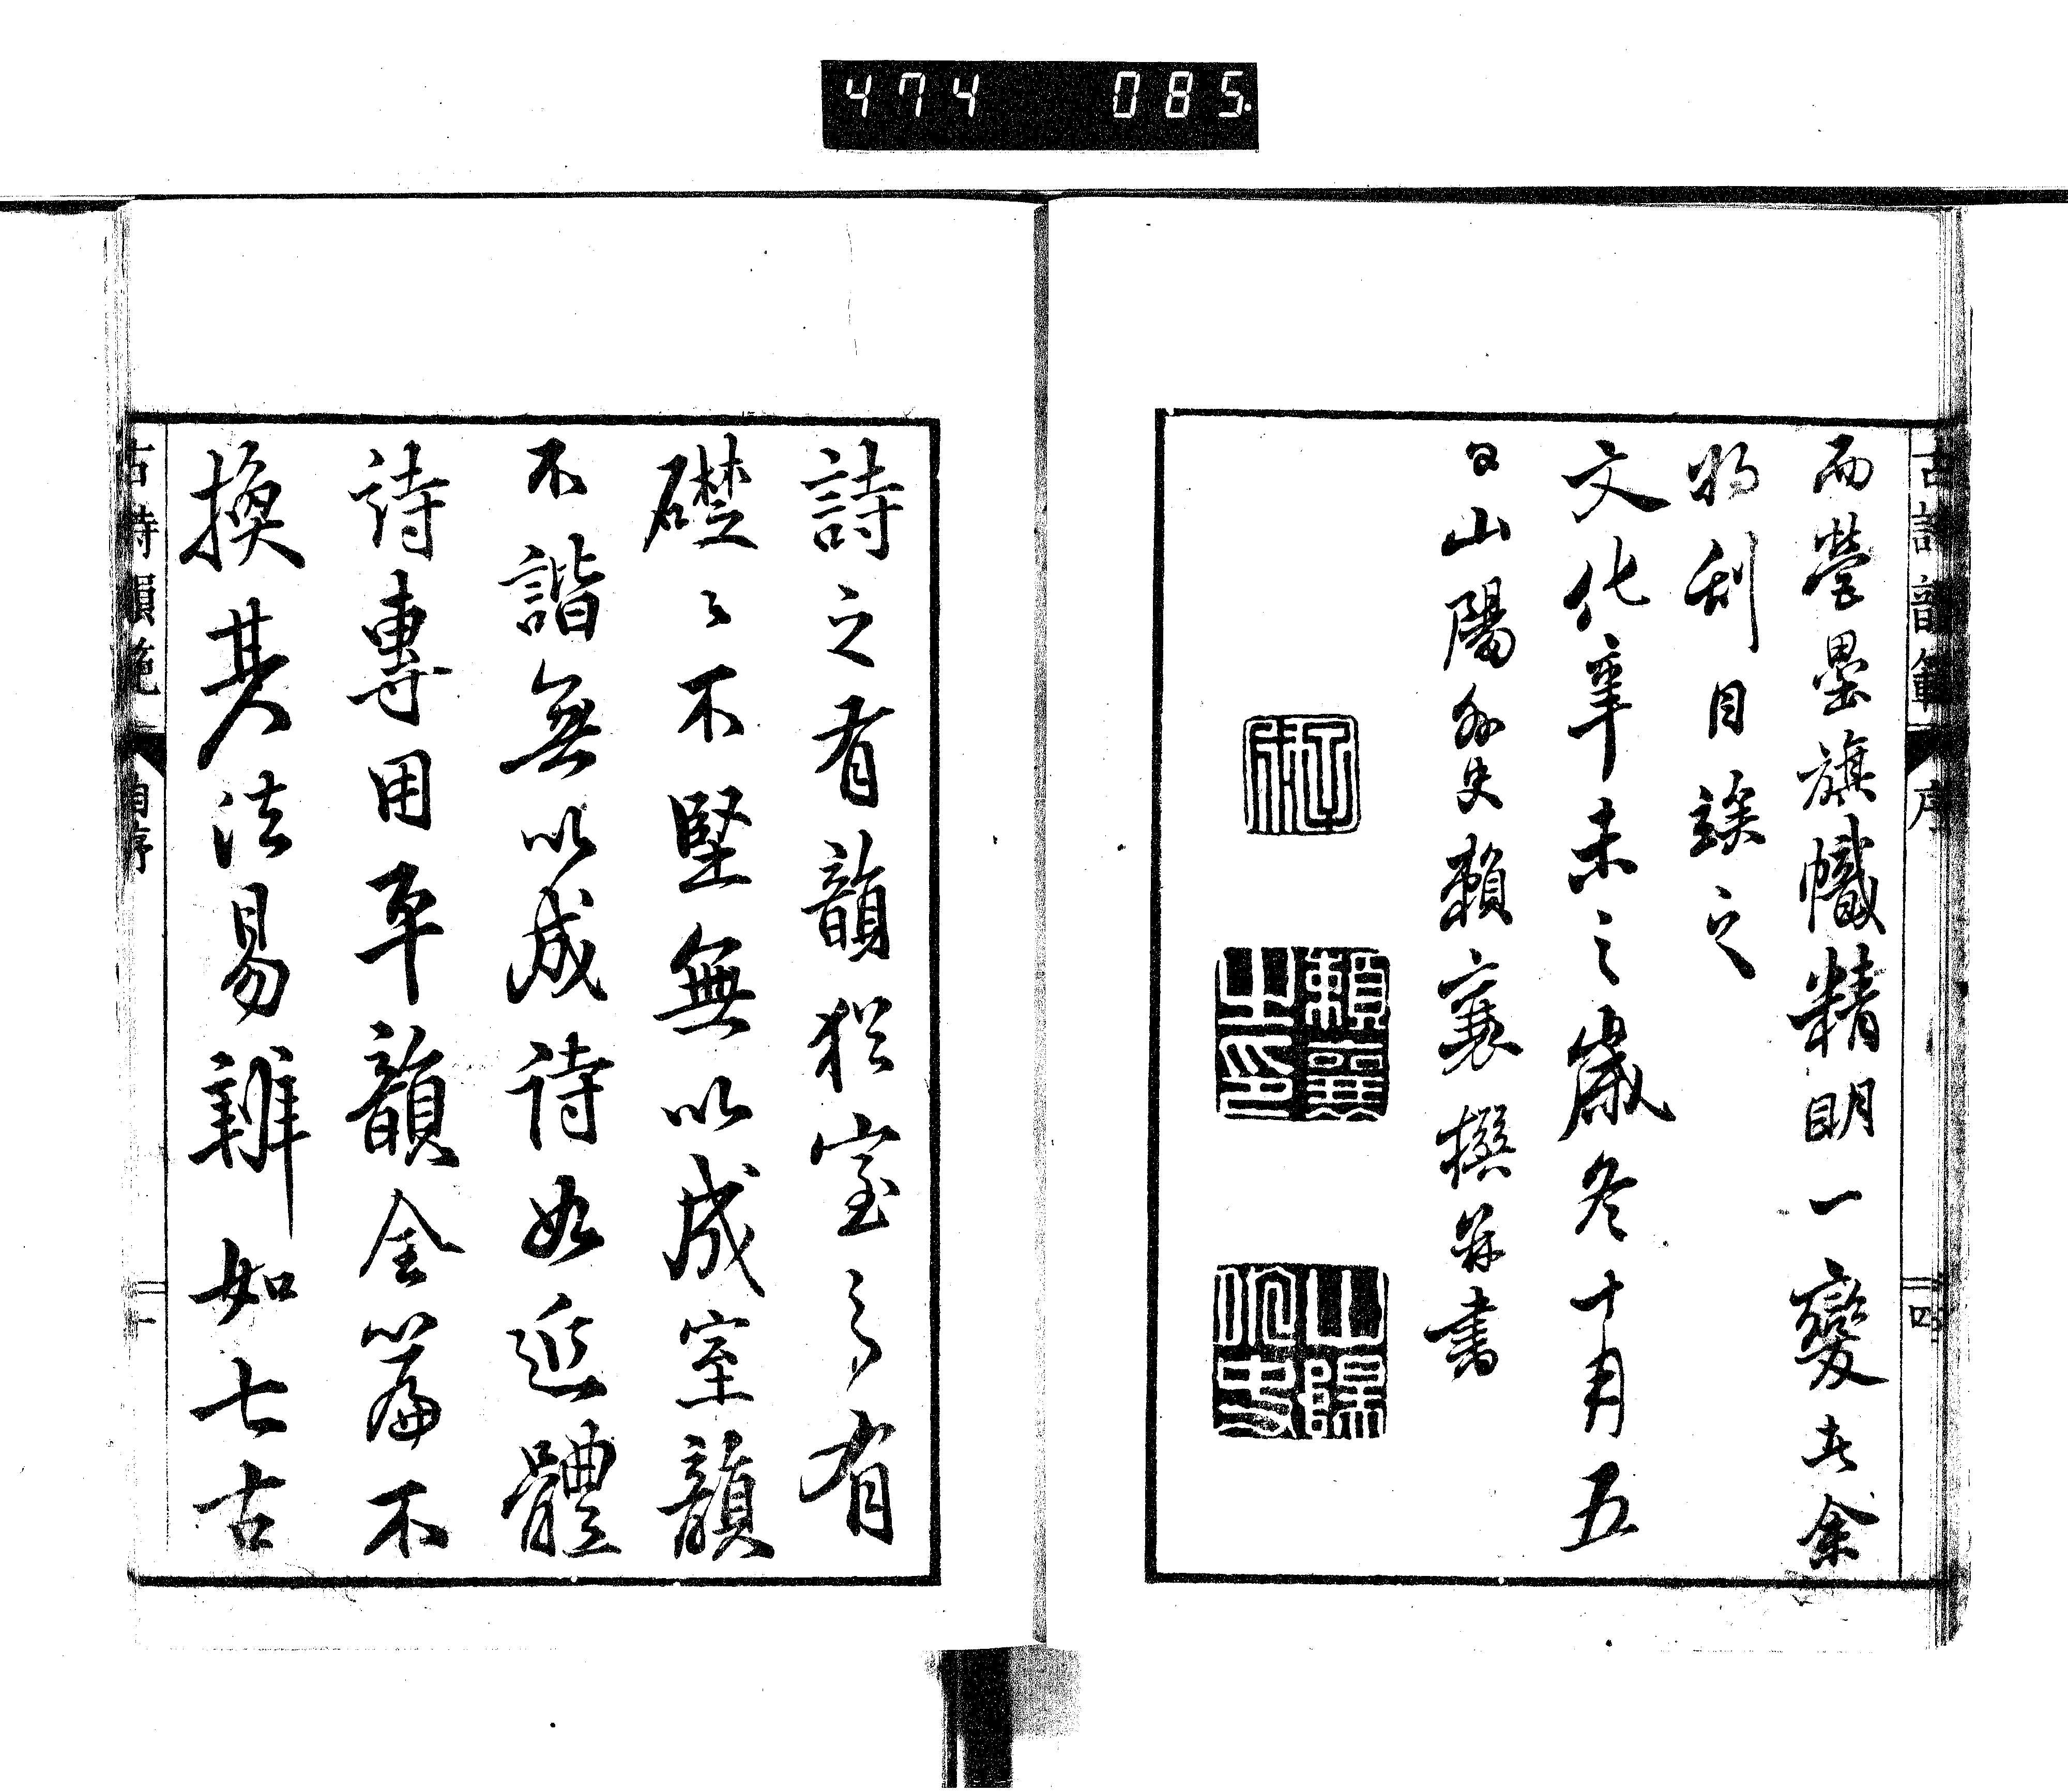 474 085
古詩韻範 序 四
而營壘旗幟精明一變者余
將刮目竢之
文化辛未之歲冬十月五
日山陽外史賴襄撰并書
賴襄之印
山陽外史
詩之有韻猶室之有
礎礎不堅無以成室韻
不諧無以成詩如近體
詩專用平韻全篇不
換其法易辨如七古
古詩韻範 自序 一